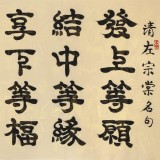 清左宗棠名句
發上等願
結中等緣
享下等福